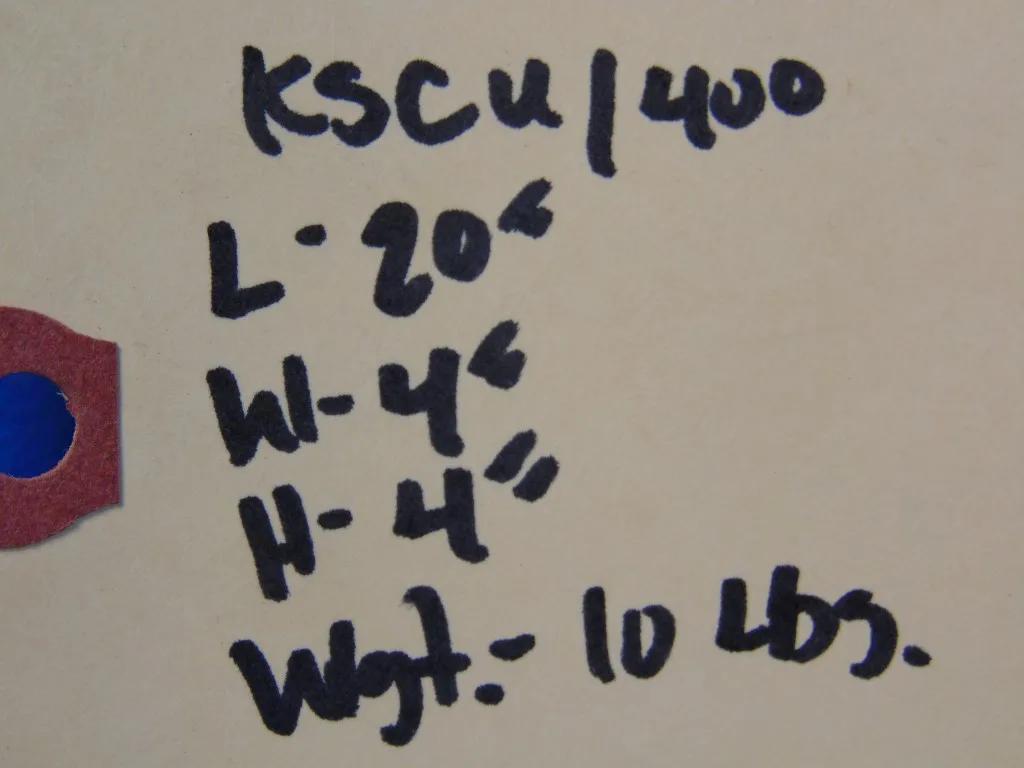 KSCU/400
L-20"
W-4"
H-4"
Wgt.- 10 Lbs.